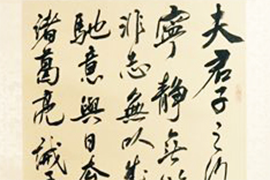 夫君子之行
寧靜無以
非志無以成
馳意與日去
諸葛亮誡子